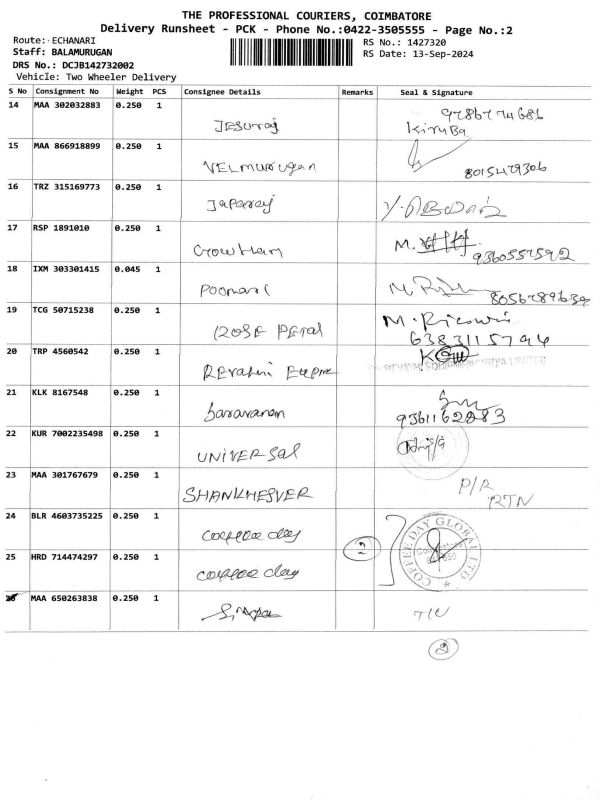 THE PROFESSIONAL COURIERS, COIMBATORE
Delivery Runsheet - PCK - Phone No.:0422-3505555 - Page No.:2
Route: ECHANARI
RS No.: 1427320
Staff: BALAMURUGAN
RS Date: 13-Sep-2024
DRS No.: DCJB142732002
Vehicle: Two Wheeler Delivery
S No Consignment No Weight PCS Consignee Details Remarks Seal & Signature
14 MAA 302032883 0.250 1 JESURAJ Kiruba
15 MAA 866918899 0.250 1 VELMURUGAN 8015479306
16 TRZ 315169773 0.250 1
17 RSP 1891010 0.250 1 Gowtham M. 9360557592
18 IXM 303301415 0.045 1 8056789639
19 TCG 50715238 0.250 1 ROSE PETAL M. 6383115794
20 TRP 4560542 0.250 1
21 KLK 8167548 0.250 1 Saravanan 9361162883
22 KUR 7002235498 0.250 1 UNIVERSAL
23 MAA 301767679 0.250 1 SHANKHESVER P/R
RTN
24 BLR 4603735225 0.250 1 coffee day COFFEE DAY GLOBAL LTD
25 HRD 714474297 0.250 1 coffee day
26 MAA 650263838 0.250 1